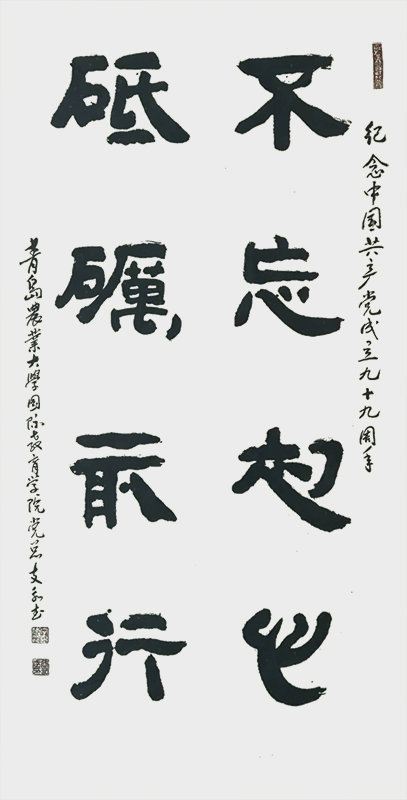 纪念中国共产党成立九十九周年
不忘初心
砥礪前行
青島農業大學国际教育学院党总支